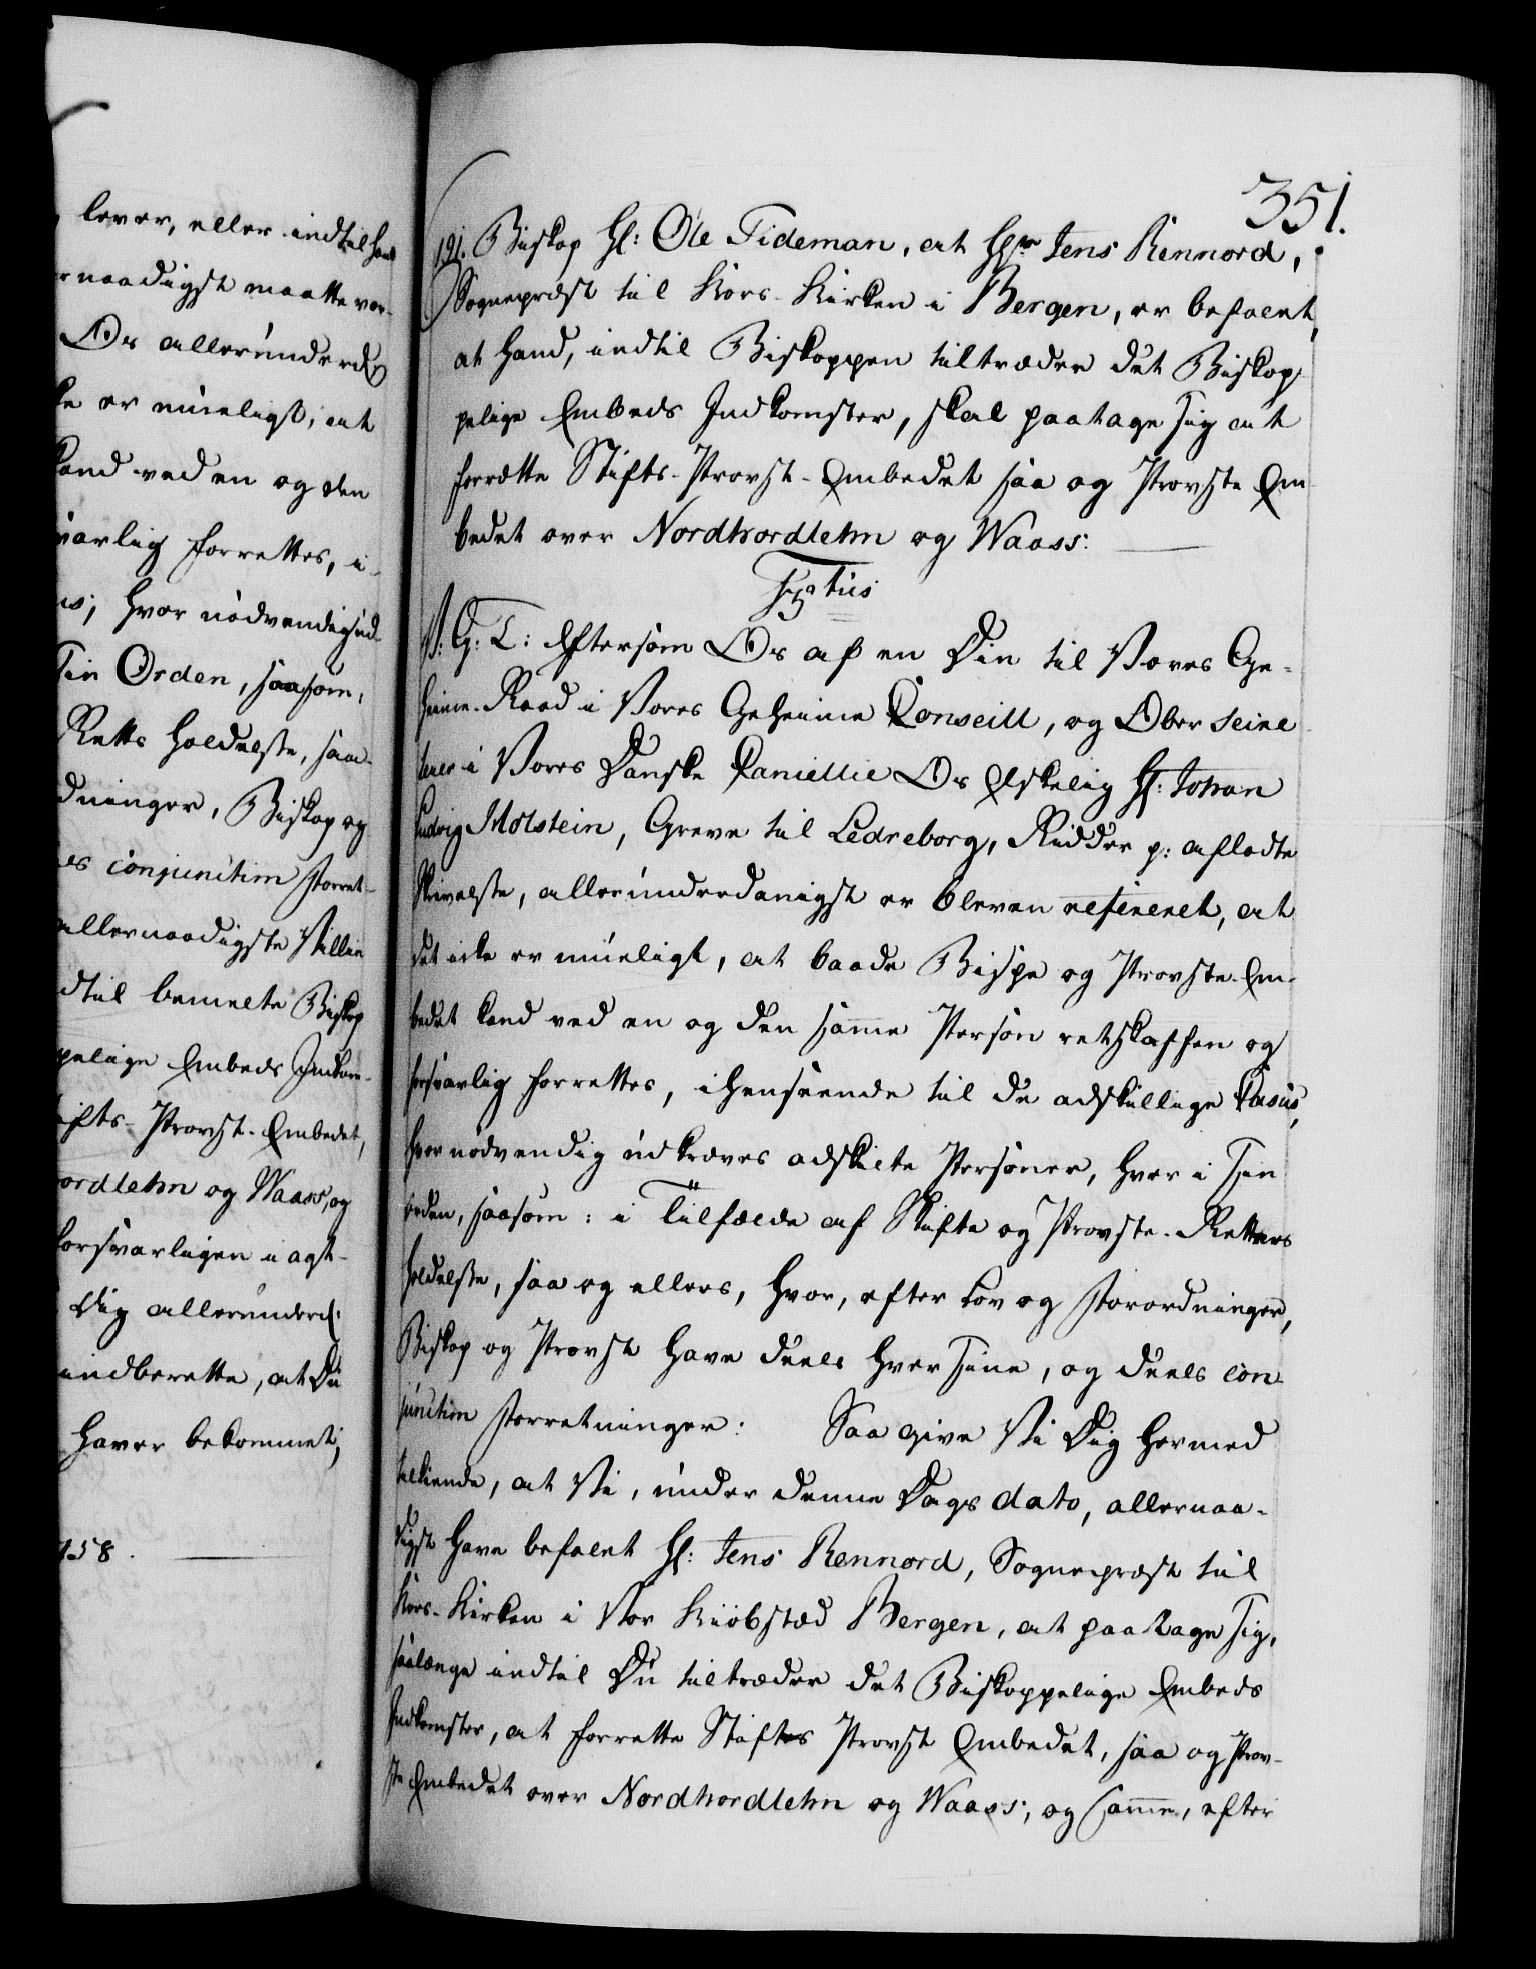 lever, eller indtil hand
rnaadigst maatte vor-
Os allerunderd
ke er mueligt, at
kand ved en og den
varlig forrettes, i
us, hvor nödvendig ud-
Sin Orden, saasom,
Retts Holdelse, saa
dninger, Biskop og
es conjunctim forret-
allernaadigste Villie
dtil bemelte Biskop
pelige Embeds Indkom-
ifts-Provst-Embedet,
ordlehn og Waass, og
forsvarligen i agt-
Dig allerunderd:
indberette, at Du
haver bekommet;
58.
351.
191. Biskop Hl: Ole Tideman, at Hr Jens Rennord,
Sognepræst til Kors-Kirken i Bergen, er befalet,
at hand, indtil Biskoppen tiltræder det Biskop-
pelige Embeds Indkomster, skal paatage sig at
forrætte Stifts-Provst-Embedet saa og Provste Em-
bedet over Nordhordlehn og Waass.
F: 5tus
V: G: T: Eftersom Os af en Din til Vores Ge-
heime-Raad i Vores Geheime Conseill, og Ober Secre
terer i Vores Danske Cancellie Os Elskelig Hl: Johan
Ludvig Holstein, Greve til Ledreborg, Ridder p: afladte
Skrivelse, allerunderdanigst er bleven refereret, at
det icke er mueligt, at baade Bispe og Provste-Em-
bedet kand ved en og den samme Person retskaffen og
forsvarlig forrettes, i henseende til de adskillige Casus,
hvor nödvendig udkræves adskilte Personer, hver i Sin
orden, saasom: i Tilfælde af Skifte og Provste-Retters
holdelse, saa og ellers, hvor, efter Lov og Forordninger,
Biskop og Provst have deels hver Sine, og deels con-
junctim Forretninger: Saa give Vi Dig hermed
tilkiende, at Vi, under denne Dags dato, allernaa-
digst have befalet Hl: Jens Rennord, Sognepræst til
Kors-Kirken i Vor Kiöbstæd Bergen, at paatage sig,
saalænge indtil Du tiltræder det Biskoppelige Embeds
Indkomster, at forrette Stiftes Provst Embedet, saa og Prov-
ste Embedet over Nordhordlehn og Waass, og samme, efter